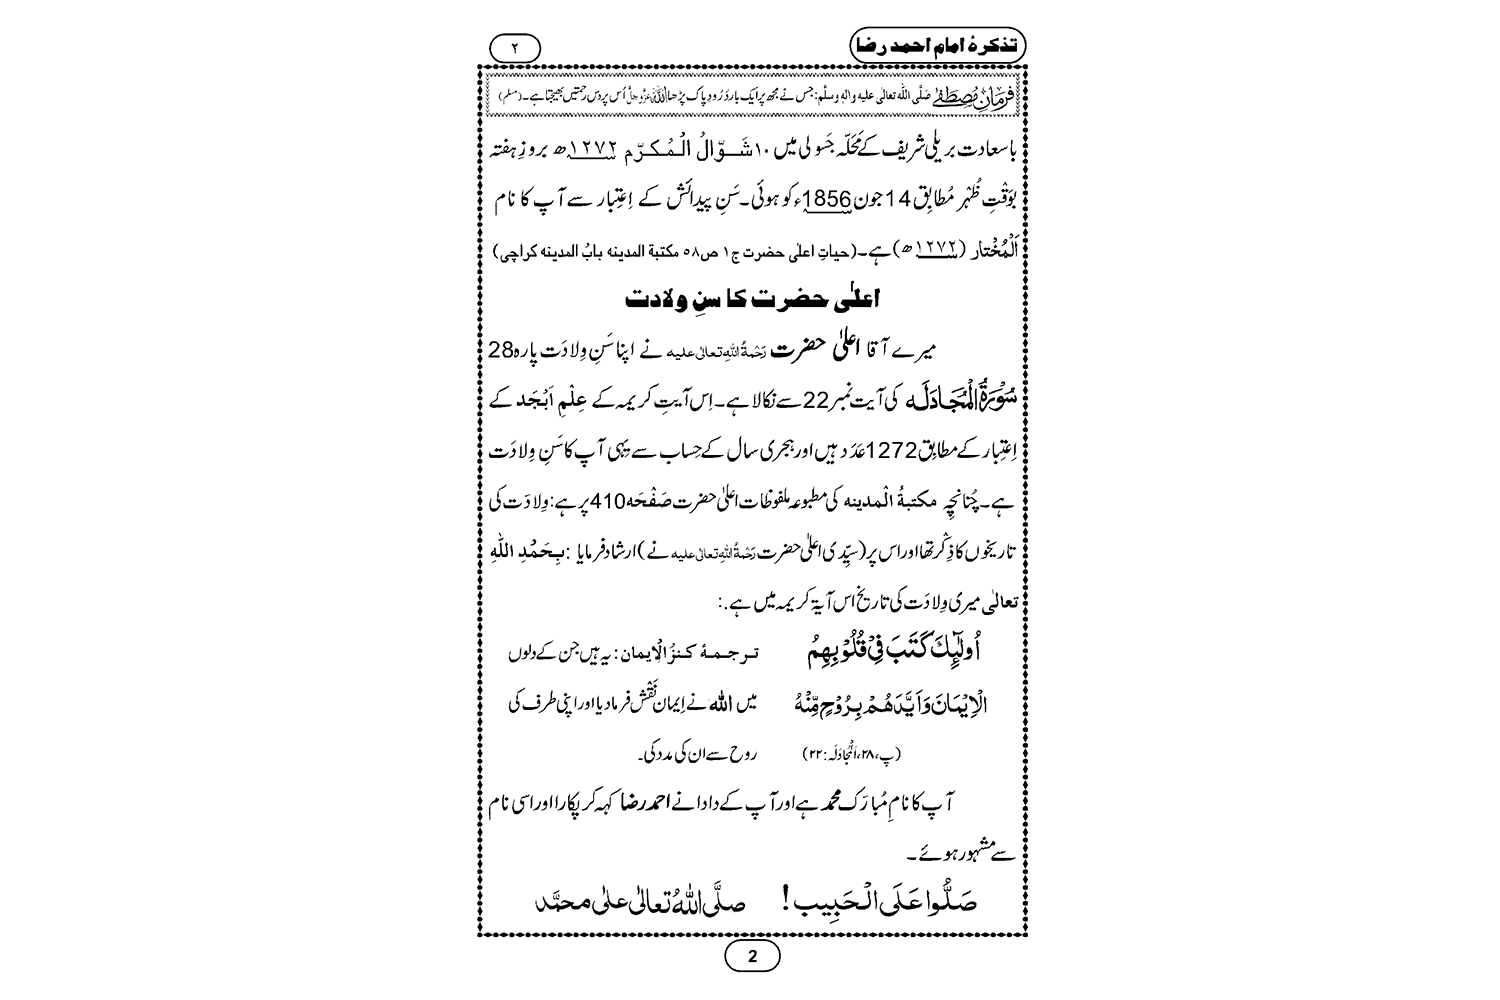 تذکرۂ امام احمد رضا
۲
فرمانِ مصطفٰے صلَّی اللہ تعالٰی علیہ والہٖ وسلَّم: جس نے مجھ پر ایک بار دُرُودِ پاک پڑھا اللہ عَزَّوَجَلَّ اُس پر دس رحمتیں بھیجتا ہے۔ (مسلم)
باسعادت بریلی شریف کے مَحَلّہ جَسولی میں ۱۰ شَوّالُ الْمُکرّم ۱۲۷۲ھ بروزِ ہفتہ
بوَقْتِ ظُہر مُطابِق 14 جون 1856ء کو ہوئی۔ سَنِ پیدائش کے اِعتِبار سے آپ کا نام
اَلْمُخْتار (۱۲۷۲ھ) ہے۔ (حیاتِ اعلٰی حضرت ج۱ ص۵۸ مکتبۃ المدینہ بابُ المدینہ کراچی)
اعلٰی حضرت کا سنِ ولادت
میرے آقا اعلیٰ حضرت رَحْمۃُ اللہِ تعالٰی علیہ نے اپنا سَنِ وِلادَت پارہ 28
سُوْرَۃُ الْمُجَادَلَہ کی آیت نمبر 22 سے نکالا ہے۔ اِس آیتِ کریمہ کے عِلْمِ اَبْجَد کے
اِعتِبار کے مطابِق 1272 عَدَد ہیں اور ہجری سال کے حِساب سے یِہی آپ کا سَنِ وِلادَت
ہے۔ چُنانچِہ مکتبۃُ الْمدینہ کی مطبوعہ ملفوظات اعلیٰ حضرت صَفْحَہ 410 پر ہے: وِلادَت کی
تاریخوں کا ذِکْر تھا اور اس پر (سیِّدی اعلیٰ حضرت رَحْمۃُ اللہِ تعالٰی علیہ نے) ارشاد فرمایا: بِحَمْدِ اللہِ
تعالٰی میری وِلادَت کی تاریخ اس آیۃ کریمہ میں ہے.:
اُولٰٓئِکَ کَتَبَ فِیْ قُلُوْبِهِمُ
الْاِیْمَانَ وَ اَیَّدَهُمْ بِرُوْحٍ مِّنْهُ
(پ،۲۸،اَلْمُجَادَلَہ:۲۲)
ترجمۂ کنزُ الْاِیمان: یہ ہیں جن کے دلوں
میں اللہ نے اِیمان نَقْش فرمادیا اور اپنی طرف کی
روح سے ان کی مدد کی۔
آپ کا نامِ مُبارَک محمد ہے اور آپ کے دادا نے احمد رضا کہہ کر پکارا اور اسی نام
سے مشہور ہوئے۔
صَلُّوا عَلَی الْحَبِیب! صلَّی اللہُ تعالٰی علٰی محمَّد
2